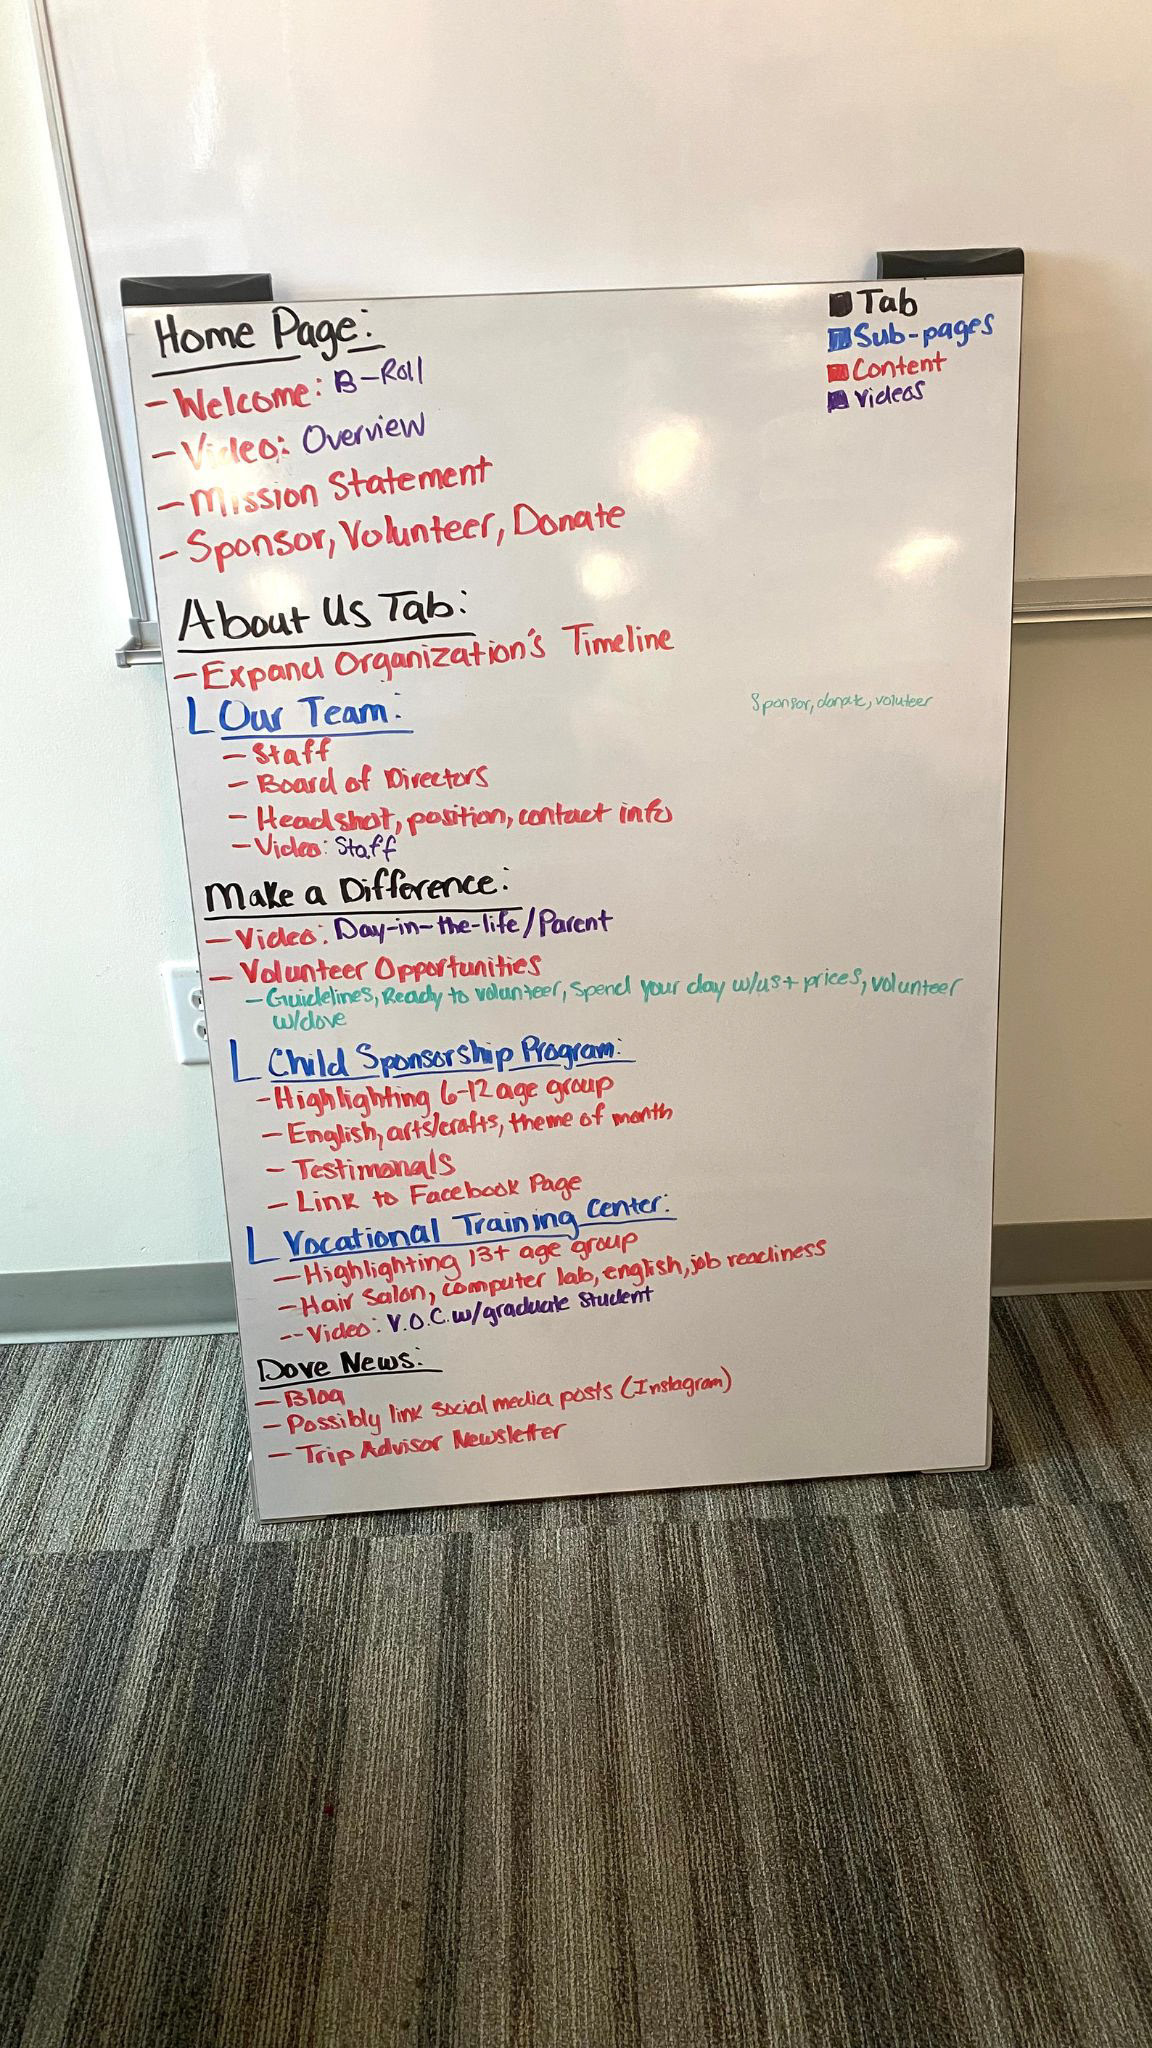 Home Page:
Tab
Sub-pages
Content
Videos
- Welcome: B-Roll
- Video: Overview
- Mission Statement
- Sponsor, Volunteer, Donate
About Us Tab:
- Expand Organization's Timeline
L Our Team:
Sponsor, donate, voluteer
- Staff
- Board of Directors
- Headshot, position, contact info
- Video: Staff
Make a Difference:
- Video: Day-in-the-life/Parent
- Volunteer Opportunities
- Guidelines, Ready to volunteer, Spend your day w/us + prices, volunteer
w/dove
L Child Sponsorship Program:
- Highlighting 6-12 age group
- English, arts/crafts, theme of month
- Testimonals
- Link to Facebook Page
L Vocational Training Center:
- Highlighting 13+ age group
- Hair Salon, computer lab, english, job readiness
-- Video: V.O.C. w/graduate student
Dove News:
- Blog
- Possibly link social media posts (Instagram)
- Trip Advisor Newsletter